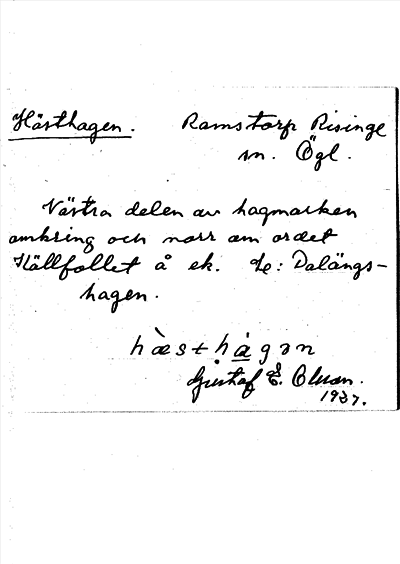 Hästhagen. Ramstorp Risinge
sn. Ögl.
Västra delen av hagmarken
omkring och norr om ordet
Källfallet å ek. Le: Dalängs-
hagen.
hæ̀sthágən
Gustaf E. Olsson.
1937.